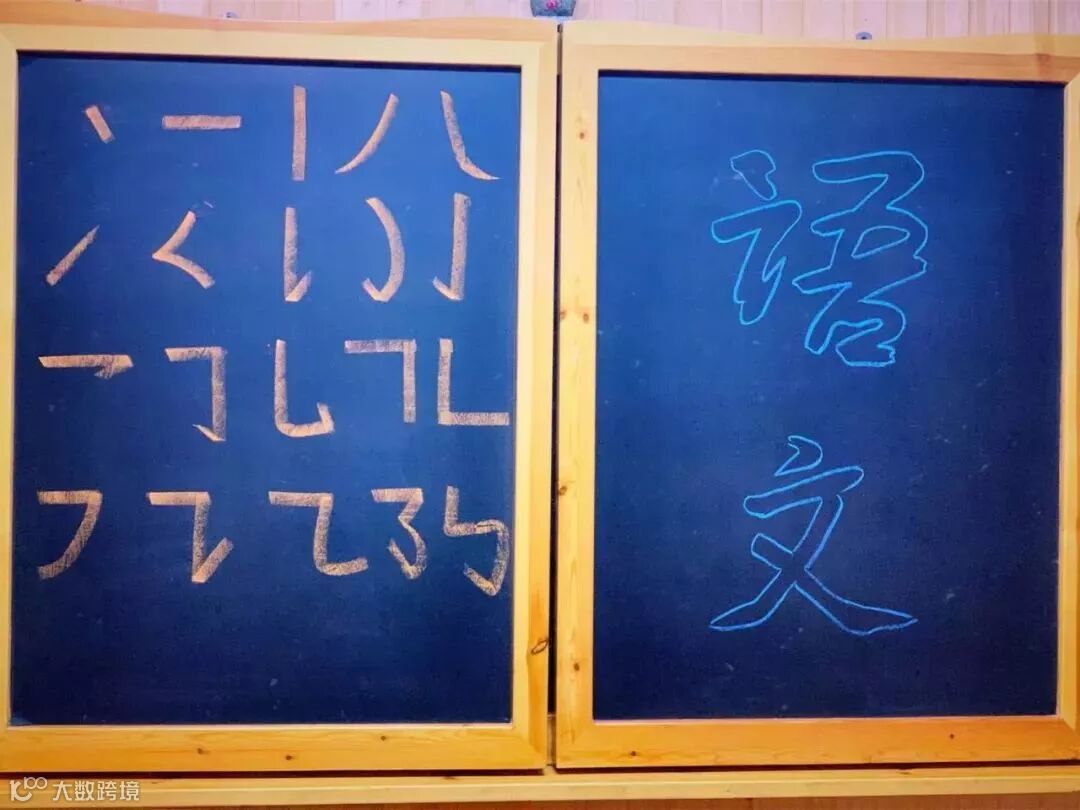 丶 一 丨 丿 ㇏
㇀ ㇛ ㇙ ㇁ 亅
㇖ ㇆ ㇟ ㇕ ㇗
㇇ ㇊ ㇍ ㇌ ㇉
语
文
大数跨境